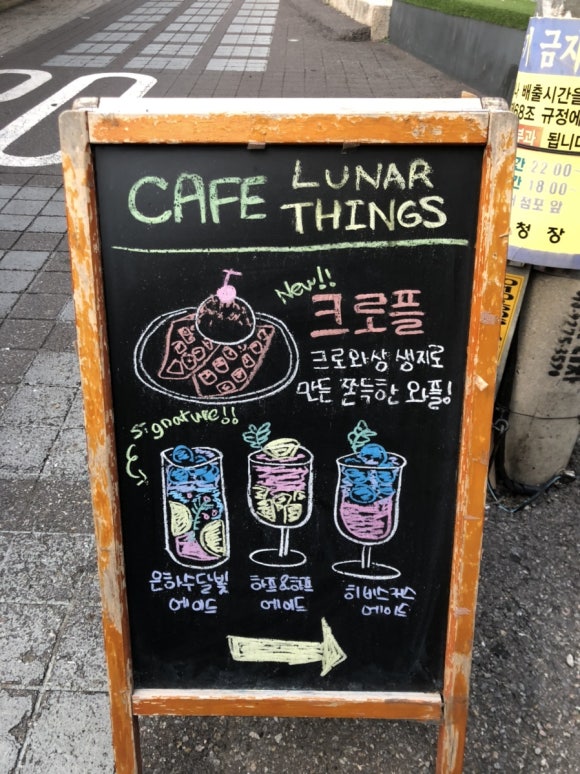 CAFE LUNAR THINGS
New!!
크로플
크로와상 생지로
만든 쫀득한 와플!
Signature!!
은하수달빛
에이드
하프&하프
에이드
히비스커스
에이드
금지
배출시간을
68조 규정에
부과 됩니다
22:00
18:00
점포 앞
청장